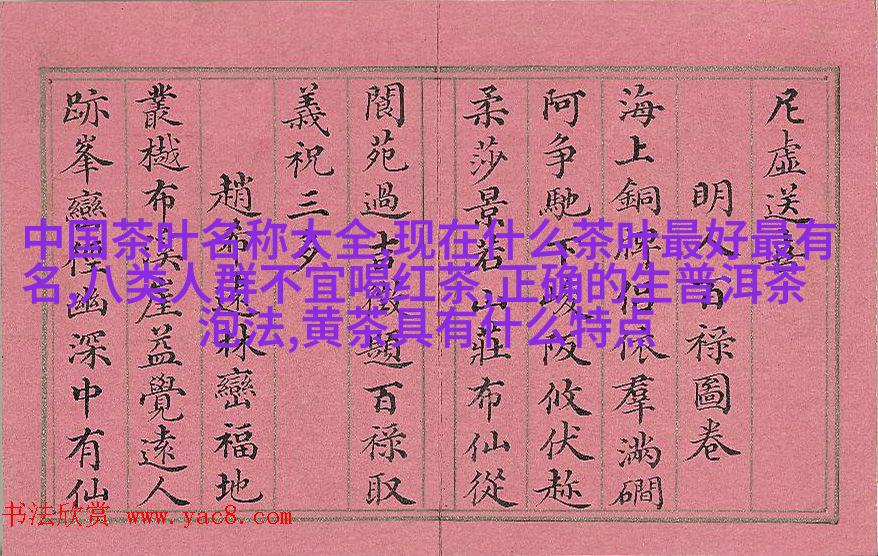 尼虛送
明人百祿圖卷
海上銅牌侣依羣滿磵
阿争馳下峻阪攸伏趂
柔莎景若山莊布仙從
閬苑過吉徵題百祿取
義祝三多
趙希遠林巒福地
叢樾布崖益覺遠人
跡峯巒徑幽深中有仙
中国茶叶名称大全,现在什么茶叶最好最有
名,八类人群不宜喝红茶,正确的生普洱茶
泡法,黄茶具有什么特点
书法欣赏 www.yac8.com